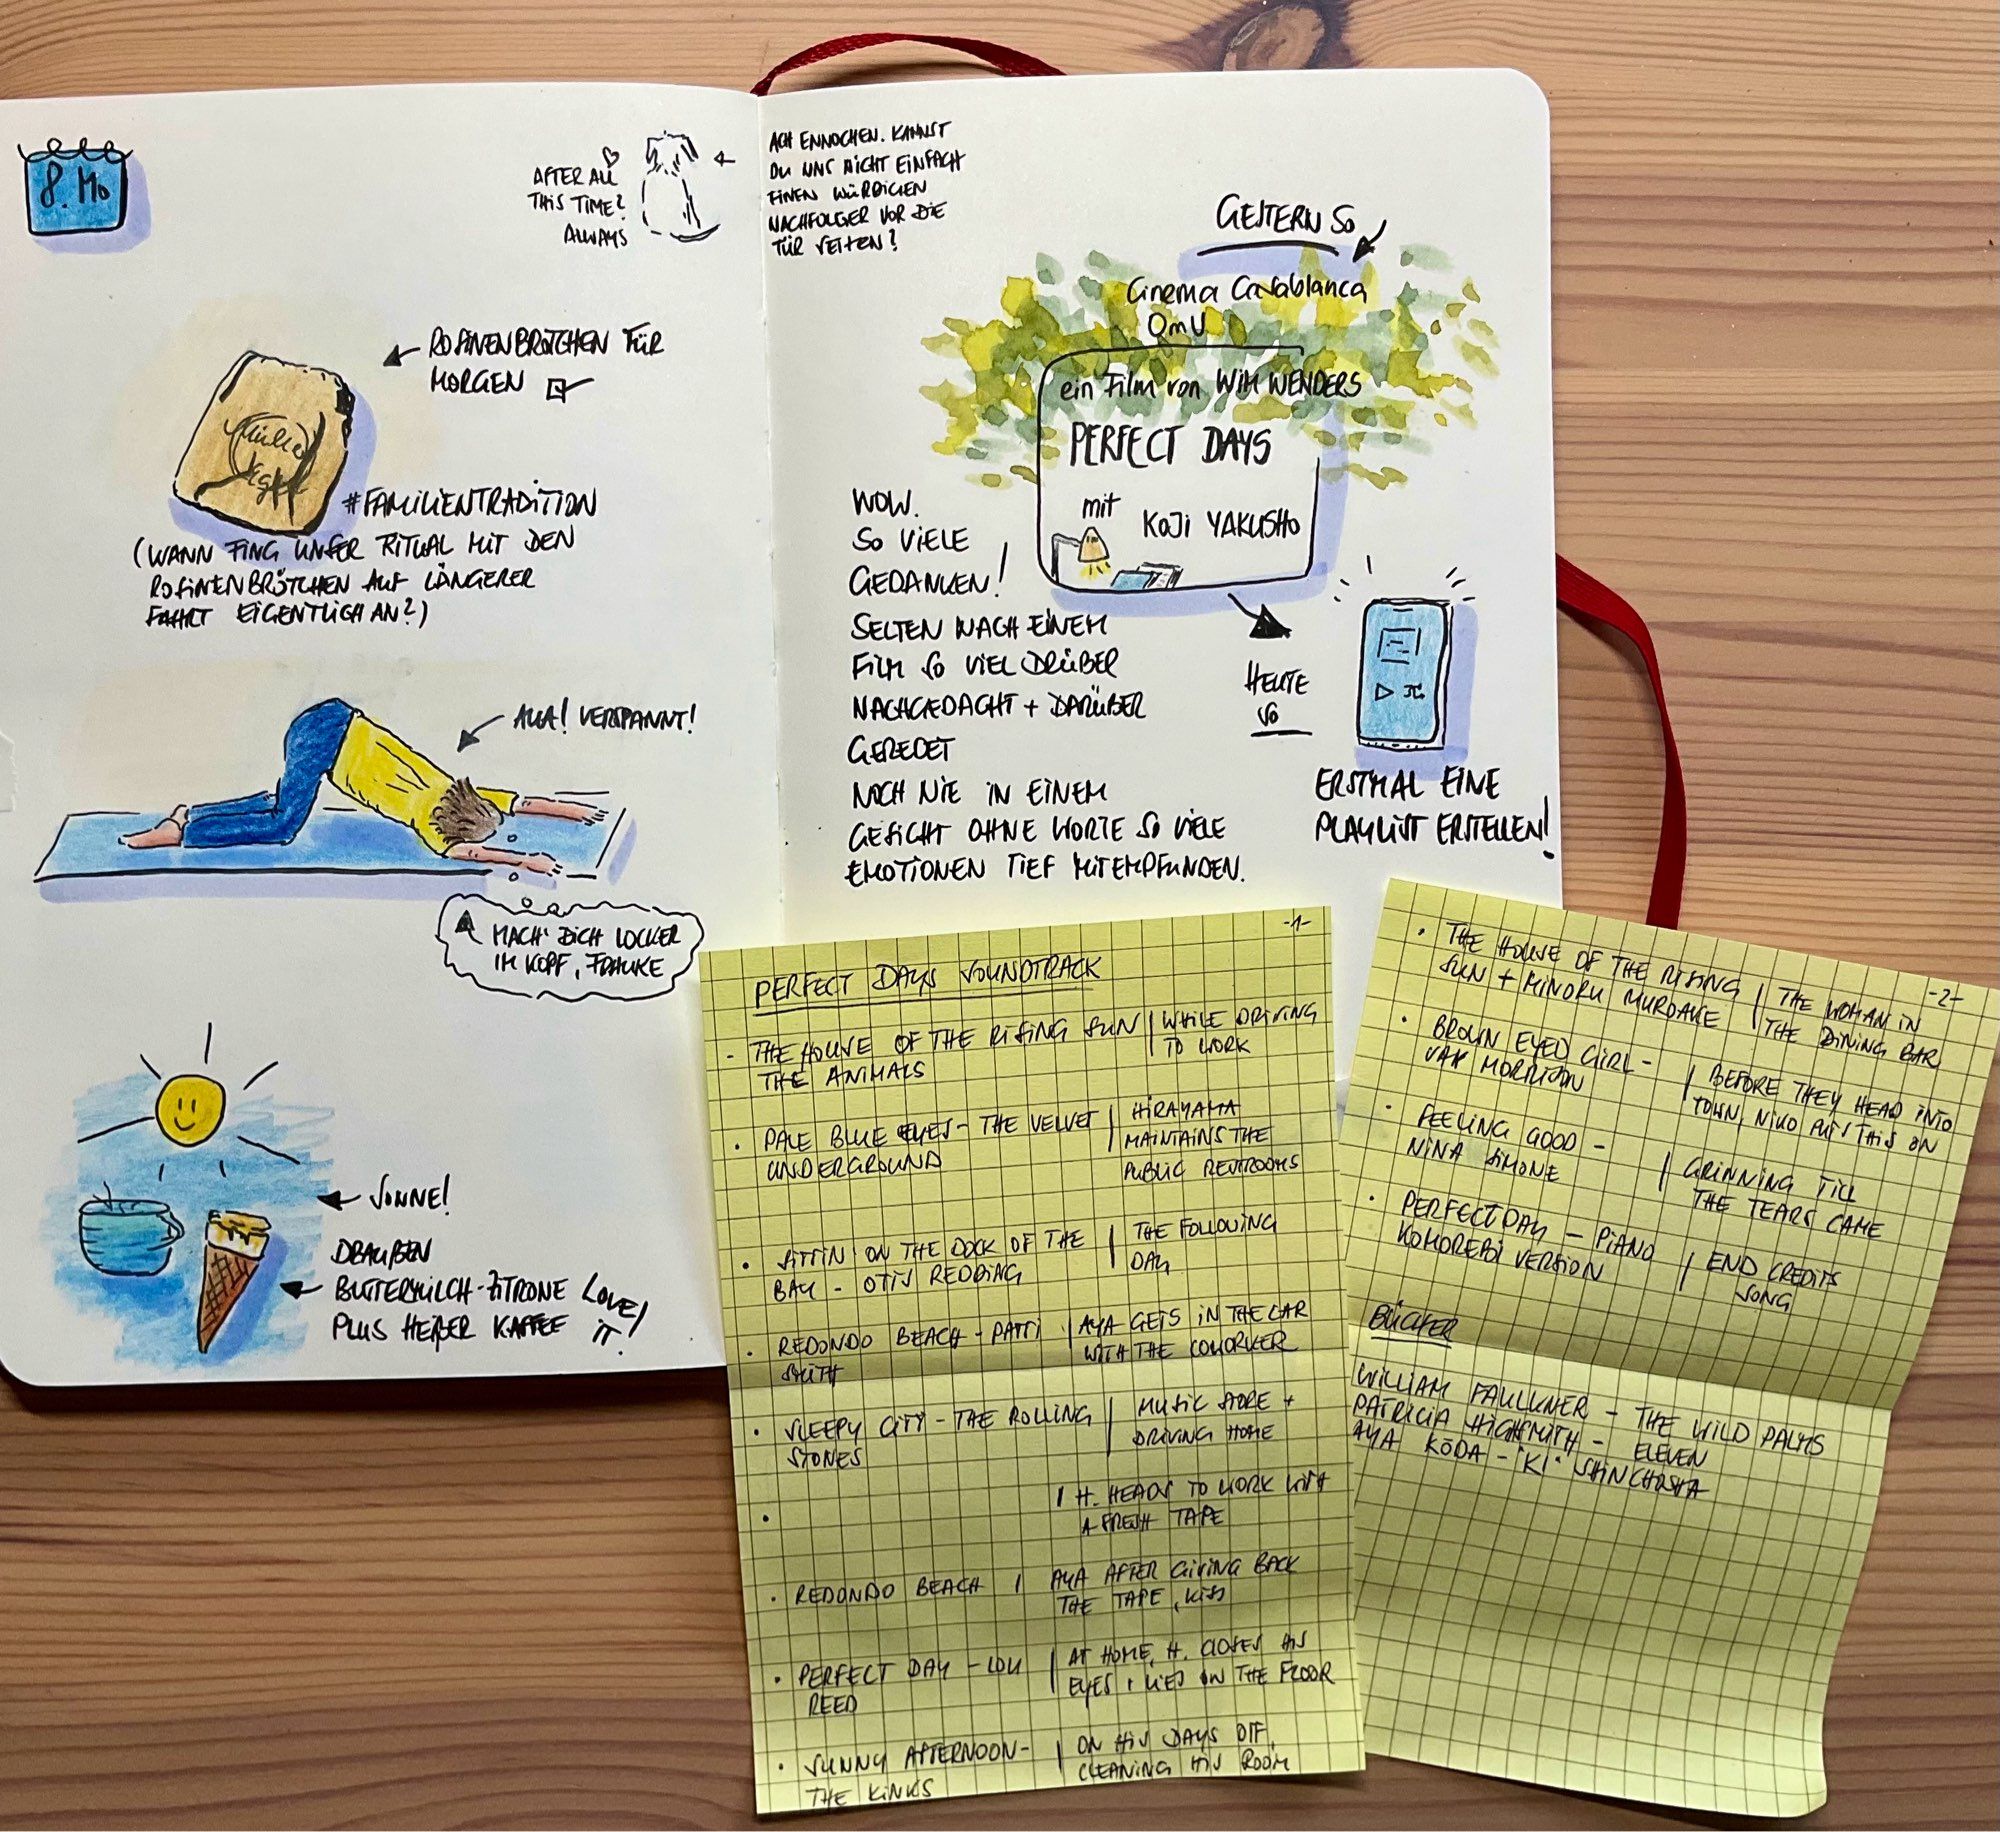 8. Mo
AFTER ALL
THIS TIME?
ALWAYS
ROSINENBRÖTCHEN FÜR
MORGEN
#FAMILIENTRADITION
(WANN FING UNSER RITUAL MIT DEN
ROSINENBRÖTCHEN AUF LÄNGERER
FAHRT EIGENTLICH AN?)
AUA! VERSPANNT!
MACH' DICH LOCKER
IM KOPF, FRAUKE
SONNE!
DRAUßEN
BUTTERMILCH-ZITRONE LOVE
PLUS HEIßER KAFFEE IT!
ACH ENNOCHEN. KANNST
DU UNS NICHT EINFACH
EINEN WÜRDIGEN
NACHFOLGER VOR DIE
TÜR SETZEN?
GESTERN SO
Cinema Casablanca
OmU
ein Film von WIM WENDERS
PERFECT DAYS
mit
KOJI YAKUSHO
WOW.
SO VIELE
GEDANKEN!
SELTEN NACH EINEM
FILM SO VIEL DRÜBER
NACHGEDACHT + DARÜBER
GEREDET
NOCH NIE IN EINEM
GESICHT OHNE WORTE SO VIELE
EMOTIONEN TIEF MITEMPFUNDEN.
HEUTE
SO
ERSTMAL EINE
PLAYLIST ERSTELLEN!
-1-
PERFECT DAYS SOUNDTRACK
- THE HOUSE OF THE RISING SUN | WHILE DRIVING
THE ANIMALS TO WORK
• PALE BLUE EYES - THE VELVET | HIRAYAMA
UNDERGROUND MAINTAINS THE
PUBLIC RESTROOMS
• SITTIN' ON THE DOCK OF THE | THE FOLLOWING
BAY - OTIS REDDING DAY
• REDONDO BEACH - PATTI | AYA GETS IN THE CAR
SMITH WITH THE COWORKER
• SLEEPY CITY - THE ROLLING | MUSIC STORE +
STONES DRIVING HOME
• | H. HEADS TO WORK WITH
A FRESH TAPE
• REDONDO BEACH | AYA AFTER GIVING BACK
THE TAPE, KISS
• PERFECT DAY - LOU | AT HOME, H. CLOSES HIS
REED EYES + LIES ON THE FLOOR
• SUNNY AFTERNOON - | ON HIS DAYS OFF,
THE KINKS CLEANING HIS ROOM
-2-
• THE HOUSE OF THE RISING | THE WOMAN IN
SUN + MINORU MURDAKE THE DINING BAR
• BROWN EYED GIRL - | BEFORE THEY HEAD INTO
VAN MORRISON TOWN, NIKO PUTS THIS ON
• FEELING GOOD - | GRINNING TILL
NINA SIMONE THE TEARS CAME
• PERFECT DAY - PIANO | END CREDITS
KOMOREBI VERSION SONG
BÜCHER
WILLIAM FAULKNER - THE WILD PALMS
PATRICIA HIGHSMITH - ELEVEN
AYA KŌDA - "KI" SHINCHOSHA